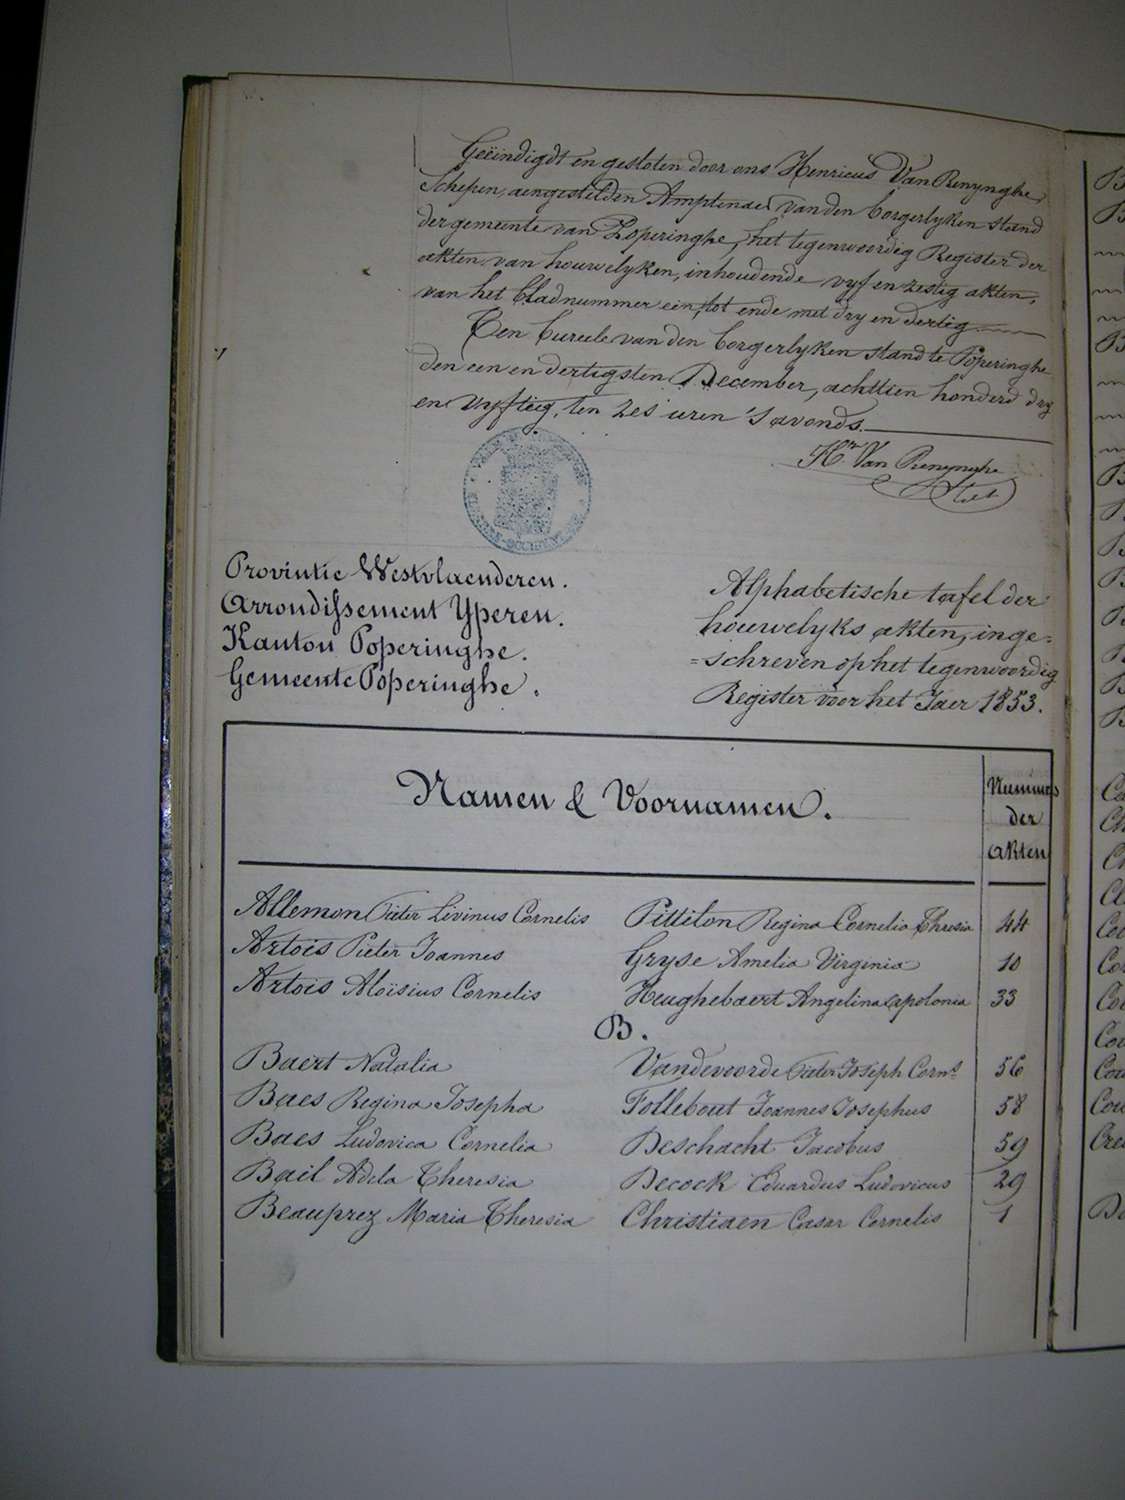 Geëindigdt en gesloten door ons Henricus Van Renynghe,
Schepen, aengestelden Amptenaer van den borgerlyken stand
der gemeente van Poperinghe, het tegenwoordig Register der
akten van houwelyken, inhoudende vyf en zestig akten,
van het bladnummer een, tot ende met dry en dertig.
Ten bureele van den borgerlyken stand te Poperinghe
den een en dertigsten December, achttien honderd dry
en vyftig, ten zes uren 's avonds.
Hr Van Renynghe
Provintie Westvlaenderen.
Arrondissement Yperen.
Kanton Poperinghe.
Gemeente Poperinghe.
Alphabetische tafel der
houwelyks akten, inge=
=schreven op het tegenwoordig
Register voor het Jaer 1853.
Namen & Voornamen.
Nummers
der
akten
Allemon Pieter Livinus Cornelis Pittilon Regina Cornelia Thresia 44
Artois Pieter Joannes Gryse Amelia Virginia 10
Artois Aloïsius Cornelis Heughebaert Angelina apolonia 33
B.
Baert Natalia Vandevoorde Pieter Joseph Corns 56
Baes Regina Josepha Follebout Joannes Josephus 58
Baes Ludovica Cornelia Deschacht Jacobus 59
Bail Adela Theresia Decock Eduardus Ludovicus 29
Beauprez Maria Theresia Christiaen Casar Cornelis 1